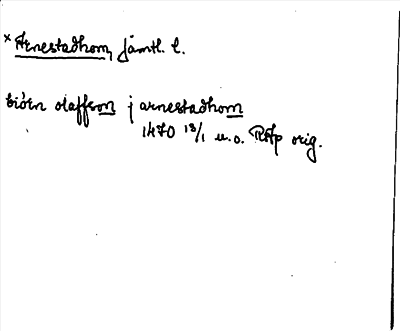 × Arnestadhom, Jämtl. l.
biörn olaffson j arnestadhom
1470 18/1 u.o. RAp orig.